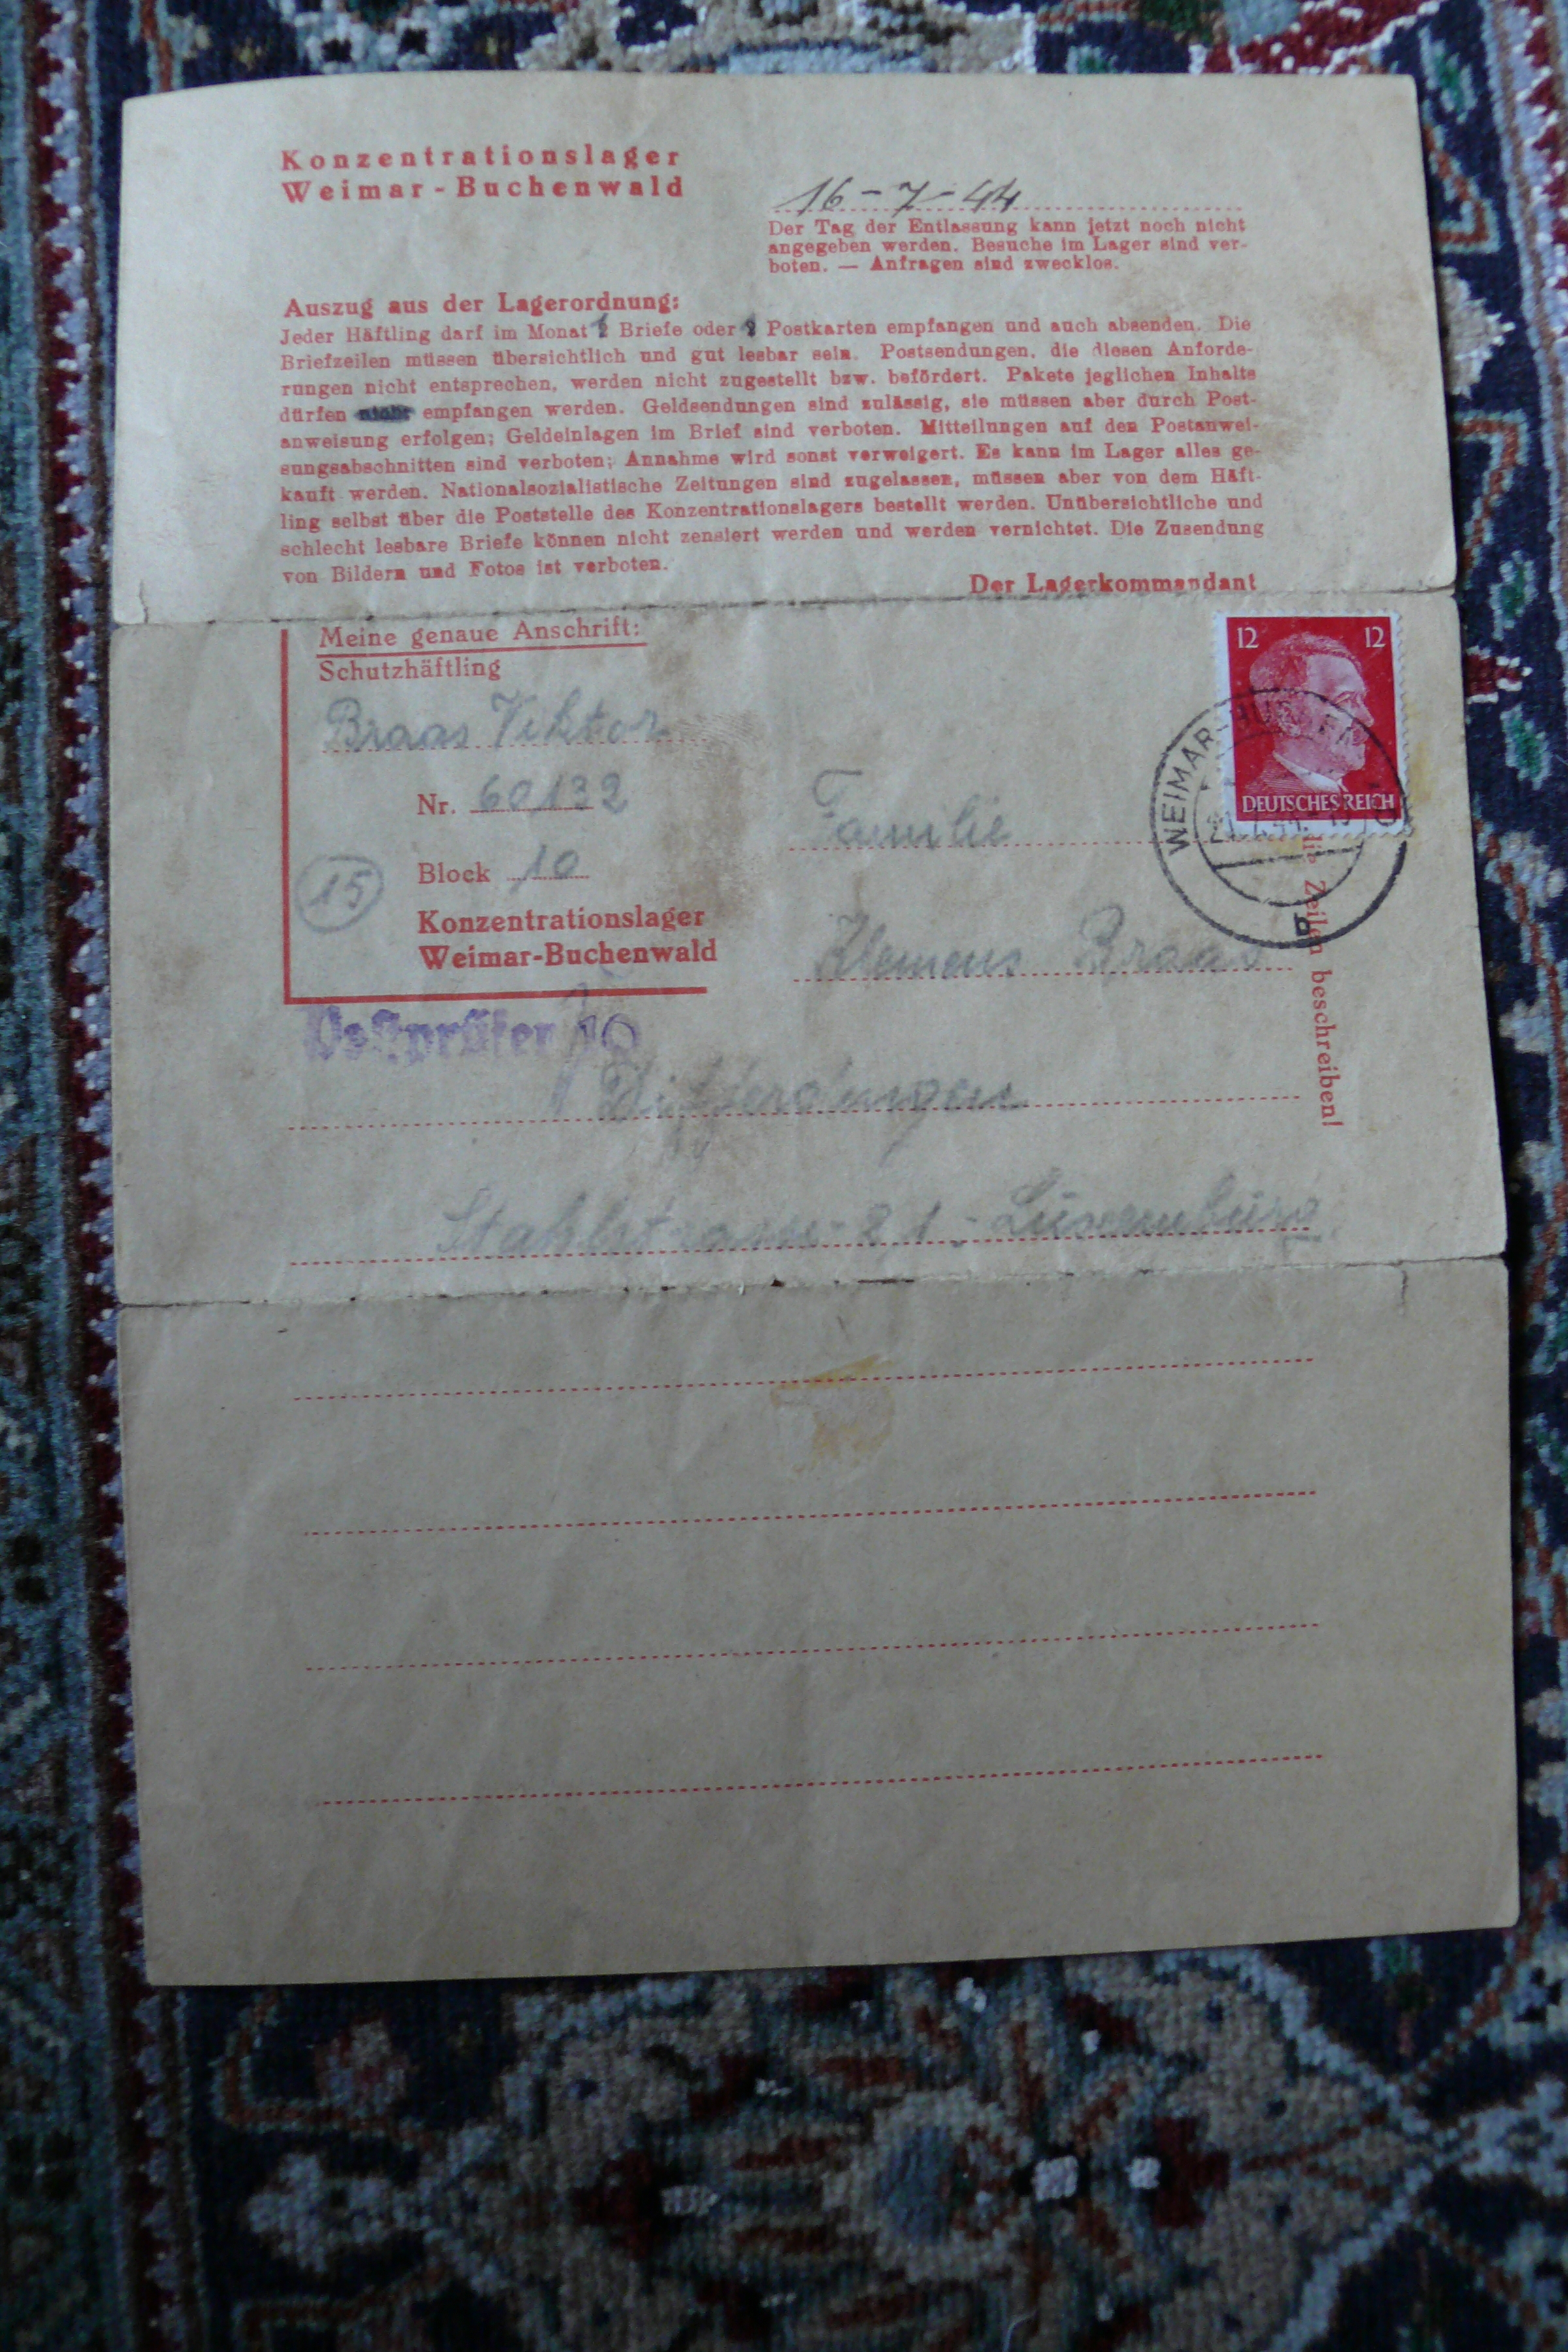 Konzentrationslager
Weimar-Buchenwald
16-7-44
Der Tag der Entlassung kann jetzt noch nicht
angegeben werden. Besuche im Lager sind ver-
boten. — Anfragen sind zwecklos.
Auszug aus der Lagerordnung:
Jeder Häftling darf im Monat Briefe oder Postkarten empfangen und auch absenden. Die
Briefzeilen müssen übersichtlich und gut lesbar sein. Postsendungen, die diesen Anforde-
rungen nicht entsprechen, werden nicht zugestellt bzw. befördert. Pakete jeglichen Inhalts
dürfen nicht empfangen werden. Geldsendungen sind zulässig, sie müssen aber durch Post-
anweisung erfolgen; Geldeinlagen im Brief sind verboten. Mitteilungen auf den Postanwei-
sungsabschnitten sind verboten; Annahme wird sonst verweigert. Es kann im Lager alles ge-
kauft werden. Nationalsozialistische Zeitungen sind zugelassen, müssen aber von dem Häft-
ling selbst über die Poststelle des Konzentrationslagers bestellt werden. Unübersichtliche und
schlecht lesbare Briefe können nicht zensiert werden und werden vernichtet. Die Zusendung
von Bildern und Fotos ist verboten.
Der Lagerkommandant
Meine genaue Anschrift:
Schutzhäftling
Braas Viktor
Nr. 60132
Block 10
15
Konzentrationslager
Weimar-Buchenwald
Postprüfer 10
12 12
DEUTSCHES REICH
WEIMAR-BUCHENWALD
Familie
Klemens Braas
Differdingen
Stahlstrasse 21 - Luxemburg
die Zeilen beschreiben!